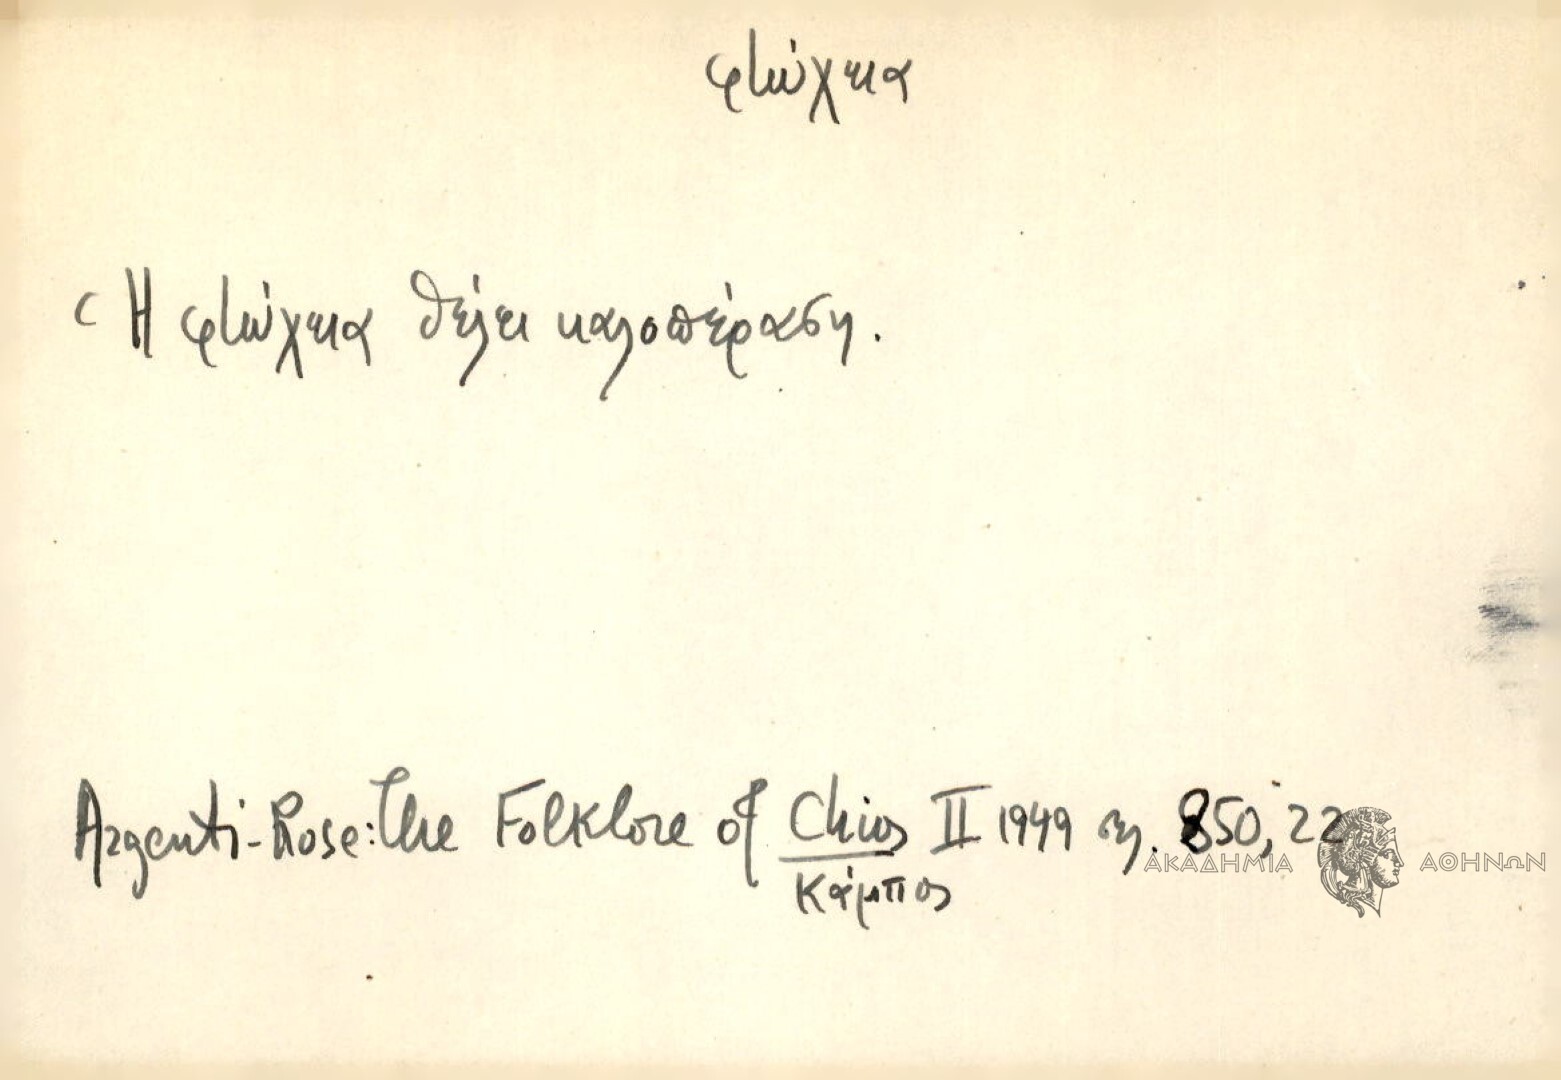 φτώχεια
Ἡ φτώχεια θέλει καλοπέραση.
Argenti-Rose: The Folklore of Chios II 1949 σελ. 850, 22
Κάμπος
ΑΚΑΔΗΜΙΑ ΑΘΗΝΩΝ